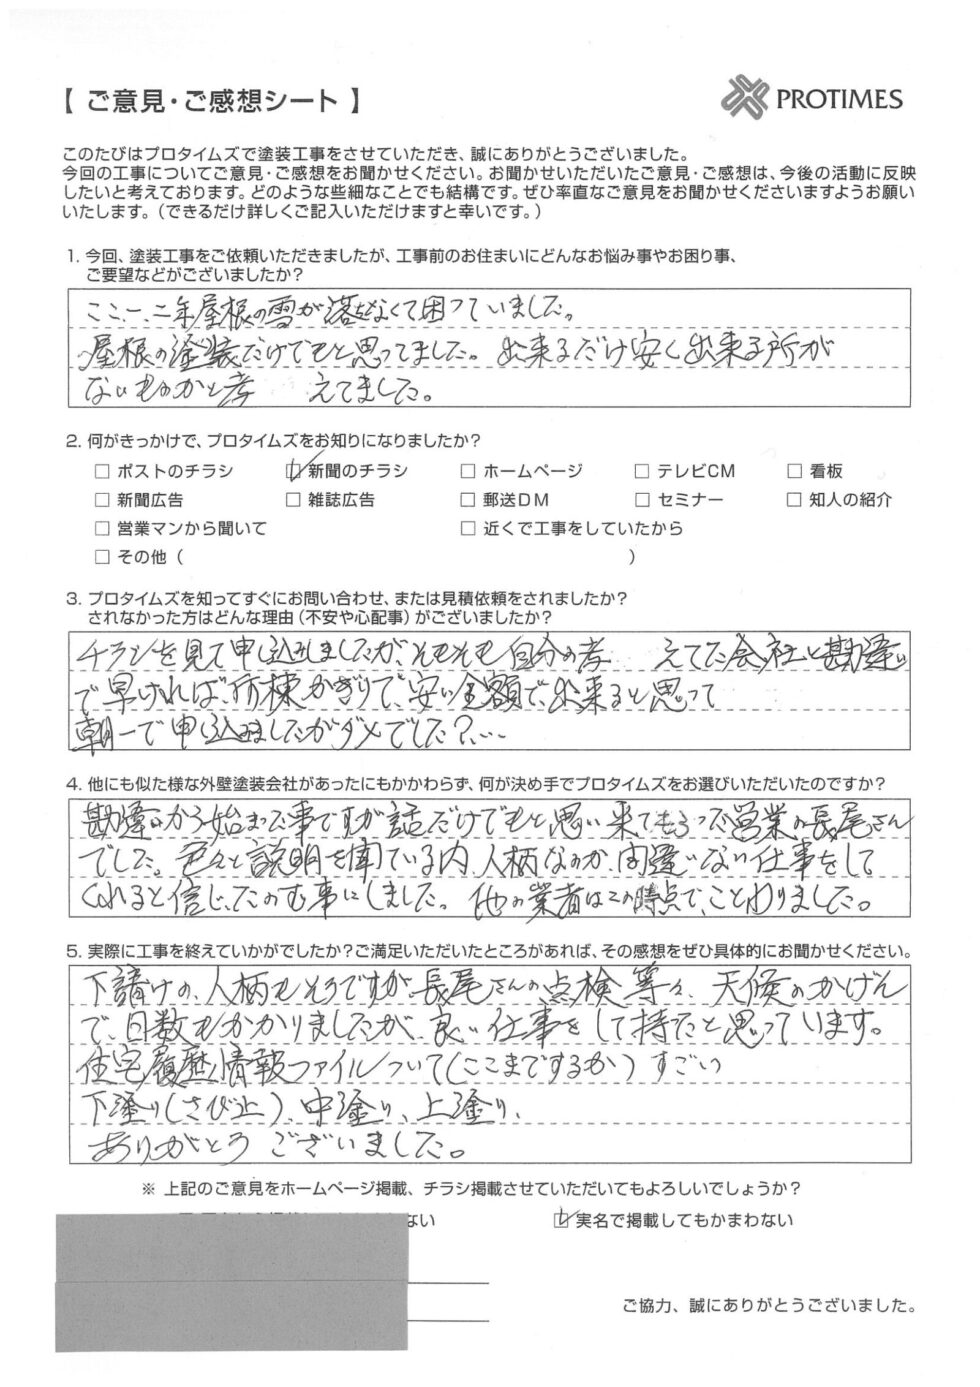 【 ご意見・ご感想シート 】
PROTIMES
このたびはプロタイムズで塗装工事をさせていただき、誠にありがとうございました。
今回の工事についてご意見・ご感想をお聞かせください。お聞かせいただいたご意見・ご感想は、今後の活動に反映
したいと考えております。どのような些細なことでも結構です。ぜひ率直なご意見をお聞かせくださいますようお願い
いたします。（できるだけ詳しくご記入いただけますと幸いです。）
1. 今回、塗装工事をご依頼いただきましたが、工事前のお住まいにどんなお悩み事やお困り事、
ご要望などがございましたか？
ここ一、二年屋根の雪が落ちなくて困っていました。
屋根の塗装だけでもと思ってました。出来るだけ安く出来る所が
ないものかと考 えてました。
2. 何がきっかけで、プロタイムズをお知りになりましたか？
□ ポストのチラシ ☑ 新聞のチラシ □ ホームページ □ テレビCM □ 看板
□ 新聞広告 □ 雑誌広告 □ 郵送DM □ セミナー □ 知人の紹介
□ 営業マンから聞いて □ 近くで工事をしていたから
□ その他（ ）
3. プロタイムズを知ってすぐにお問い合わせ、または見積依頼をされましたか？
されなかった方はどんな理由（不安や心配事）がございましたか？
チラシを見て申し込みしましたが、そもそも自分の考 えてた会社と勘違い
で早ければ、何棟かぎりで、安い金額で、出来ると思って
朝一で申し込みましたがダメでした？…
4. 他にも似た様な外壁塗装会社があったにもかかわらず、何が決め手でプロタイムズをお選びいただいたのですか？
勘違いから始まった事ですが話だけでもと思い来てもらった営業の長尾さん
でした。色々と説明を聞いている内、人柄なのか、間違いない仕事をして
くれると信じ、たのむ事にしました。他の業者はこの時点で、ことわりました。
5. 実際に工事を終えていかがでしたか？ご満足いただいたところがあれば、その感想をぜひ具体的にお聞かせください。
下請けの、人柄もそうですが、長尾さんの点検等々、天候のかげん
で、日数もかかりましたが、良い仕事をして持たと思っています。
住宅履歴情報ファイルついて（ここまでするか）すごい
下塗り（さび止）、中塗り、上塗り、
ありがとうございました。
※ 上記のご意見をホームページ掲載、チラシ掲載させていただいてもよろしいでしょうか？
ない ☑ 実名で掲載してもかまわない
ご協力、誠にありがとうございました。